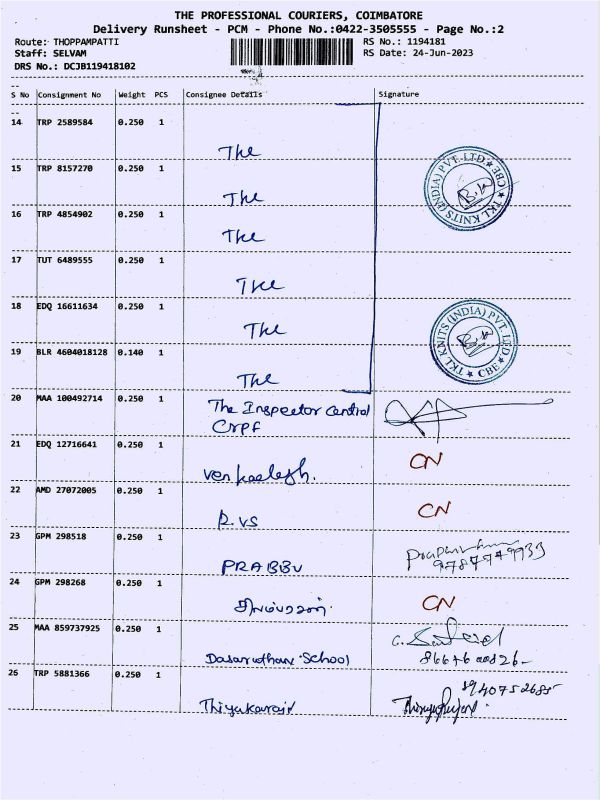 THE PROFESSIONAL COURIERS, COIMBATORE
Delivery Runsheet - PCM - Phone No.:0422-3505555 - Page No.:2
Route: THOPPAMPATTI RS No.: 1194181
Staff: SELVAM RS Date: 24-Jun-2023
DRS No.: DCJB119418102
--
S No Consignment No Weight PCS Consignee Details Signature
--
14 TRP 2589584 0.250 1
The
15 TRP 8157270 0.250 1
The
TKL KNITS (INDIA) PVT. LTD ★ CBE ★
16 TRP 4854902 0.250 1
The
17 TUT 6489555 0.250 1
The
18 EDQ 16611634 0.250 1
The
TKL KNITS (INDIA) PVT. LTD ★ CBE ★
19 BLR 4604018128 0.140 1
The
20 MAA 100492714 0.250 1
The Inspector Central
Crpf
21 EDQ 12716641 0.250 1
CN
22 AMD 27072005 0.250 1
R.VS CN
23 GPM 298518 0.250 1
PRABBU
24 GPM 298268 0.250 1
CN
25 MAA 859737925 0.250 1
School
26 TRP 5881366 0.250 1